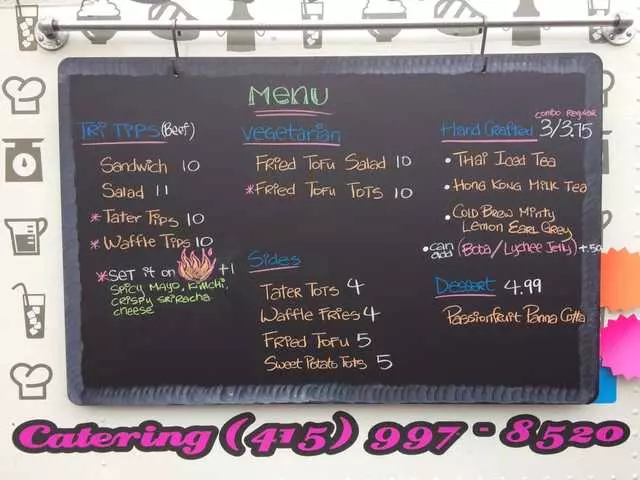 Menu
Tri Tips (Beef)
Sandwich 10
Salad 11
*Tater Tips 10
*Waffle Tips 10
*Set it on +1
Spicy Mayo, Kimchi,
Crispy Sriracha
Cheese
Vegetarian
Fried Tofu Salad 10
*Fried Tofu Tots 10
Sides
Tater Tots 4
Waffle Fries 4
Fried Tofu 5
Sweet Potato Tots 5
combo Regular
Hand Crafted 3/3.75
• Thai Iced Tea
• Hong Kong Milk Tea
• Cold Brew Minty
Lemon Earl Grey
• can add (Boba/Lychee Jelly) +.50
Dessert 4.99
Passionfruit Panna Cotta
Catering (415) 997-8520